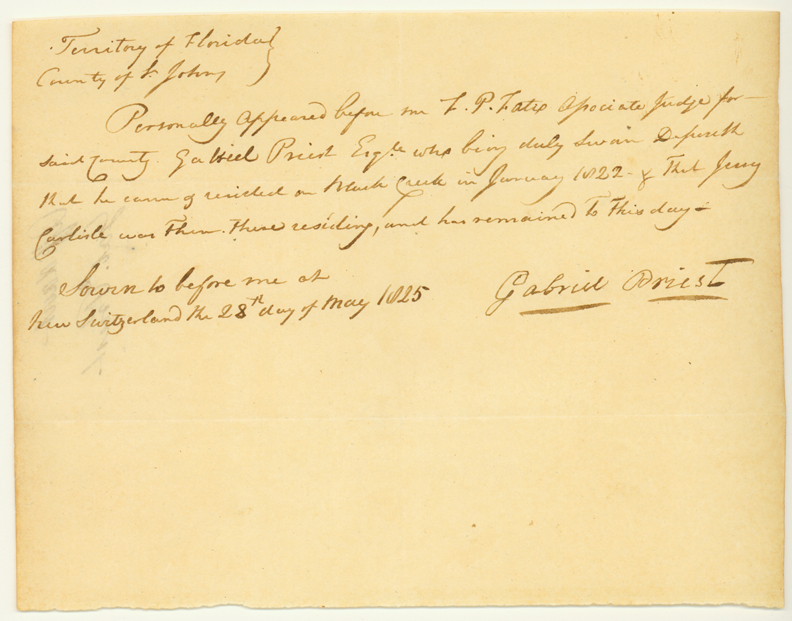 Territory of Florida }
County of St Johns }
Personally appeared before me F. P. Fatio Associate Judge for
said County. Gabriel Priest Esqre who being duly Sworn Deposeth
that he came & resided on Black Creek in January 1822 & That Jerry
Carlisle was then there residing, and has remained to this day
Sworn to before me at
New Switzerland the 28th day of May 1825
Gabriel Priest